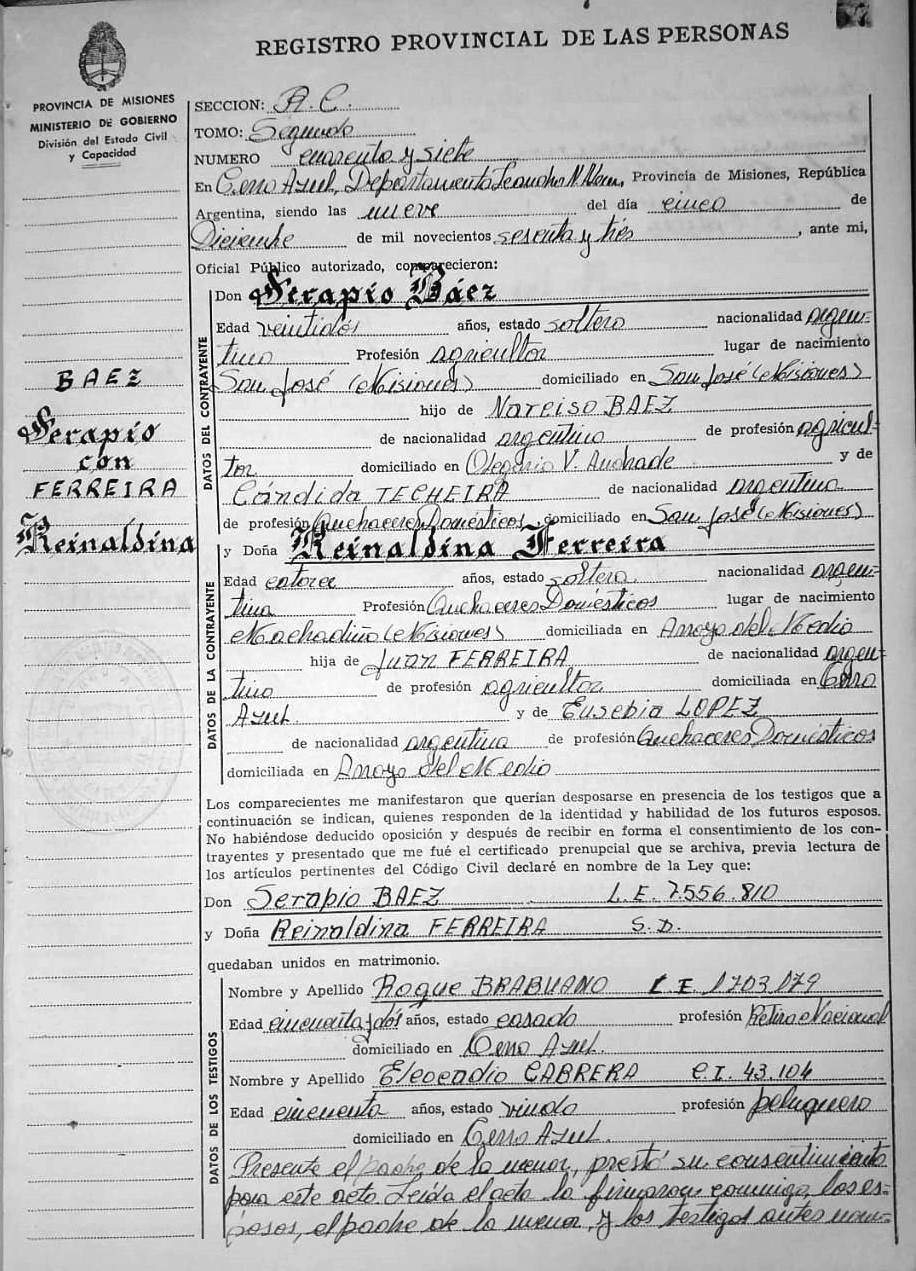 REGISTRO PROVINCIAL DE LAS PERSONAS
PROVINCIA DE MISIONES
MINISTERIO DE GOBIERNO
División del Estado Civil
y Capacidad
BAEZ
Serapio
con
FERREIRA
Reinaldina
SECCION: A.C.
TOMO: Segundo
NUMERO cuarenta y siete
En Cerro Azul, Departamento Leandro N. Alem, Provincia de Misiones, República
Argentina, siendo las nueve del día cinco de
Diciembre de mil novecientos sesenta y tres, ante mi,
Oficial Público autorizado, comparecieron:
DATOS DEL CONTRAYENTE
Don Serapio Báez
Edad veintidós años, estado soltero nacionalidad argen-
tino Profesión agricultor lugar de nacimiento
San José (Misiones) domiciliado en San José (Misiones)
hijo de Narciso BAEZ
de nacionalidad argentino de profesión agricul-
tor domiciliado en Olegario V. Andrade y de
Cándida TECHEIRA de nacionalidad argentina
de profesión Quehaceres Domésticos, domiciliado en San José (Misiones)
DATOS DE LA CONTRAYENTE
y Doña Reinaldina Ferreira
Edad catorce años, estado soltera nacionalidad argen-
tina Profesión Quehaceres Domésticos lugar de nacimiento
Machadiño (Misiones) domiciliada en Arroyo del Medio
hija de Juan FERREIRA de nacionalidad argen-
tino de profesión agricultor domiciliada en Cerro
Azul. y de Eusebia LOPEZ
de nacionalidad argentina de profesión Quehaceres Domésticos
domiciliada en Arroyo del Medio
Los comparecientes me manifestaron que querían desposarse en presencia de los testigos que a
continuación se indican, quienes responden de la identidad y habilidad de los futuros esposos.
No habiéndose deducido oposición y después de recibir en forma el consentimiento de los con-
trayentes y presentado que me fué el certificado prenupcial que se archiva, previa lectura de
los artículos pertinentes del Código Civil declaré en nombre de la Ley que:
Don Serapio BAEZ L.E. 7.556.810
y Doña Reinaldina FERREIRA S.D.
quedaban unidos en matrimonio.
DATOS DE LOS TESTIGOS
Nombre y Apellido Roque BRABUANO L.E. 1703179
Edad cincuenta y dós años, estado casado profesión Retirac Nacional
domiciliado en Cerro Azul.
Nombre y Apellido Eleocadio CABRERA C.I. 43.104
Edad cincuenta años, estado viudo profesión peluquero
domiciliado en Cerro Azul.
Presente el padre de la menor, prestó su consentimiento
para este acto. Leída el acta la firmaron conmigo, los es-
posos, el padre de la menor, y los testigos antes nom-